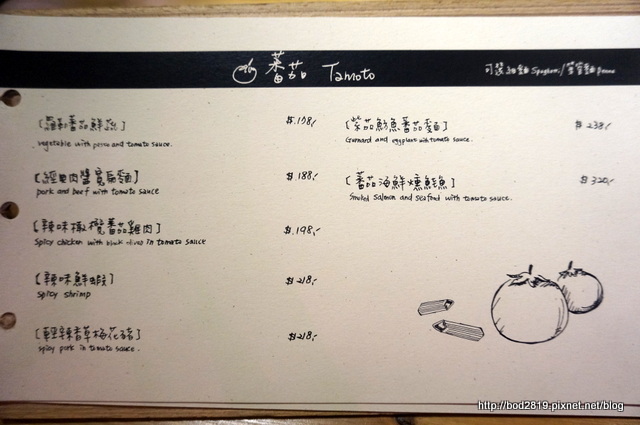 蕃茄 Tamoto
可選 細麵 Spaghetti / 筆管麵 penne
[ 蕃茄鮮蔬 ] $.178,-
vegetable with penne and tomato sauce.
[ 經典肉醬寬扁麵 ] $.188,-
pork and beef with tomato sauce
[ 辣味橄欖蕃茄雞肉 ] $.198,-
spicy chicken with black olives in tomato sauce
[ 辣味鮮蝦 ] $.218,-
spicy shrimp
[ 輕辣香草梅花豬 ] $.218,-
spicy pork in tomato sauce.
[ 紫茄魴魚蕃茄麵 ] $.238,-
Gurnard and eggplant with tomato sauce.
[ 蕃茄海鮮燻鮭魚 ] $.320,-
Smoked Salmon and seafood with tomato sauce.
http://bod2819.pixnet.net/blog